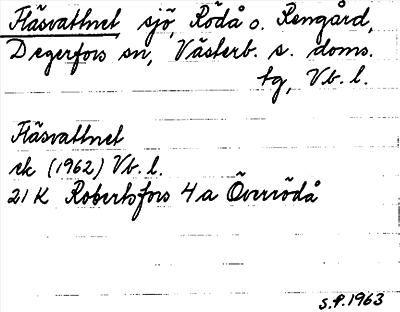 Fläsvattnet sjö, Rödå o. Rengård,
Degerfors sn, Västerb. s. doms.
tg, Vb. l.
Fläsvattnet
ek (1962) Vb. l.
21 K Robertsfors 4a Överrödå
S.P. 1963